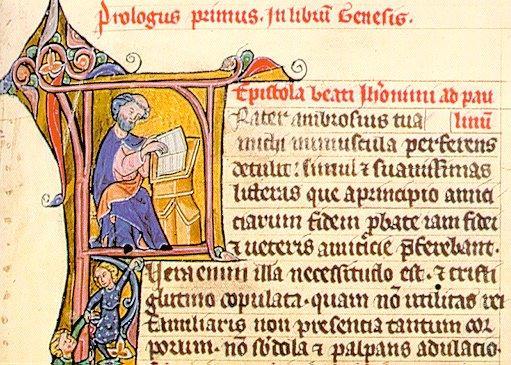 Prologus primus. In libru Genesis.
Epistola beati Jheronimi ad pau
Frater ambrosius tua linu
michi munuscula perferens
detulit: simul & suauissimas
litteras que a principio amici
ciarum fidem probate iam fidei
& ueteris amicicie preferebant.
Uera enim illa necessitudo est. & cristi
glutino copulata. quam no utilitas rei
familiaris non presencia tantum cor
porum. no subdola & palpans adulacio.